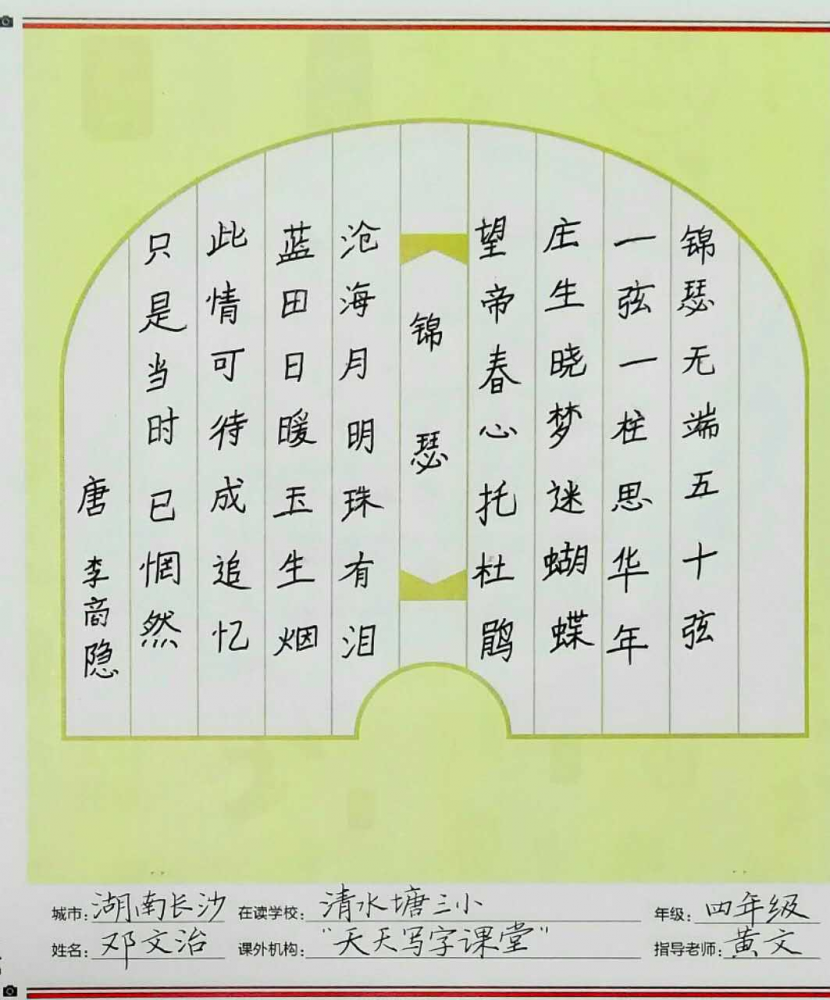 锦瑟无端五十弦
一弦一柱思华年
庄生晓梦迷蝴蝶
望帝春心托杜鹃
锦瑟
沧海月明珠有泪
蓝田日暖玉生烟
此情可待成追忆
只是当时已惘然
唐 李商隐
城市: 湖南长沙 在读学校: 清水塘三小 年级: 四年级
姓名: 邓文治 课外机构: "天天写字课堂" 指导老师: 黄文